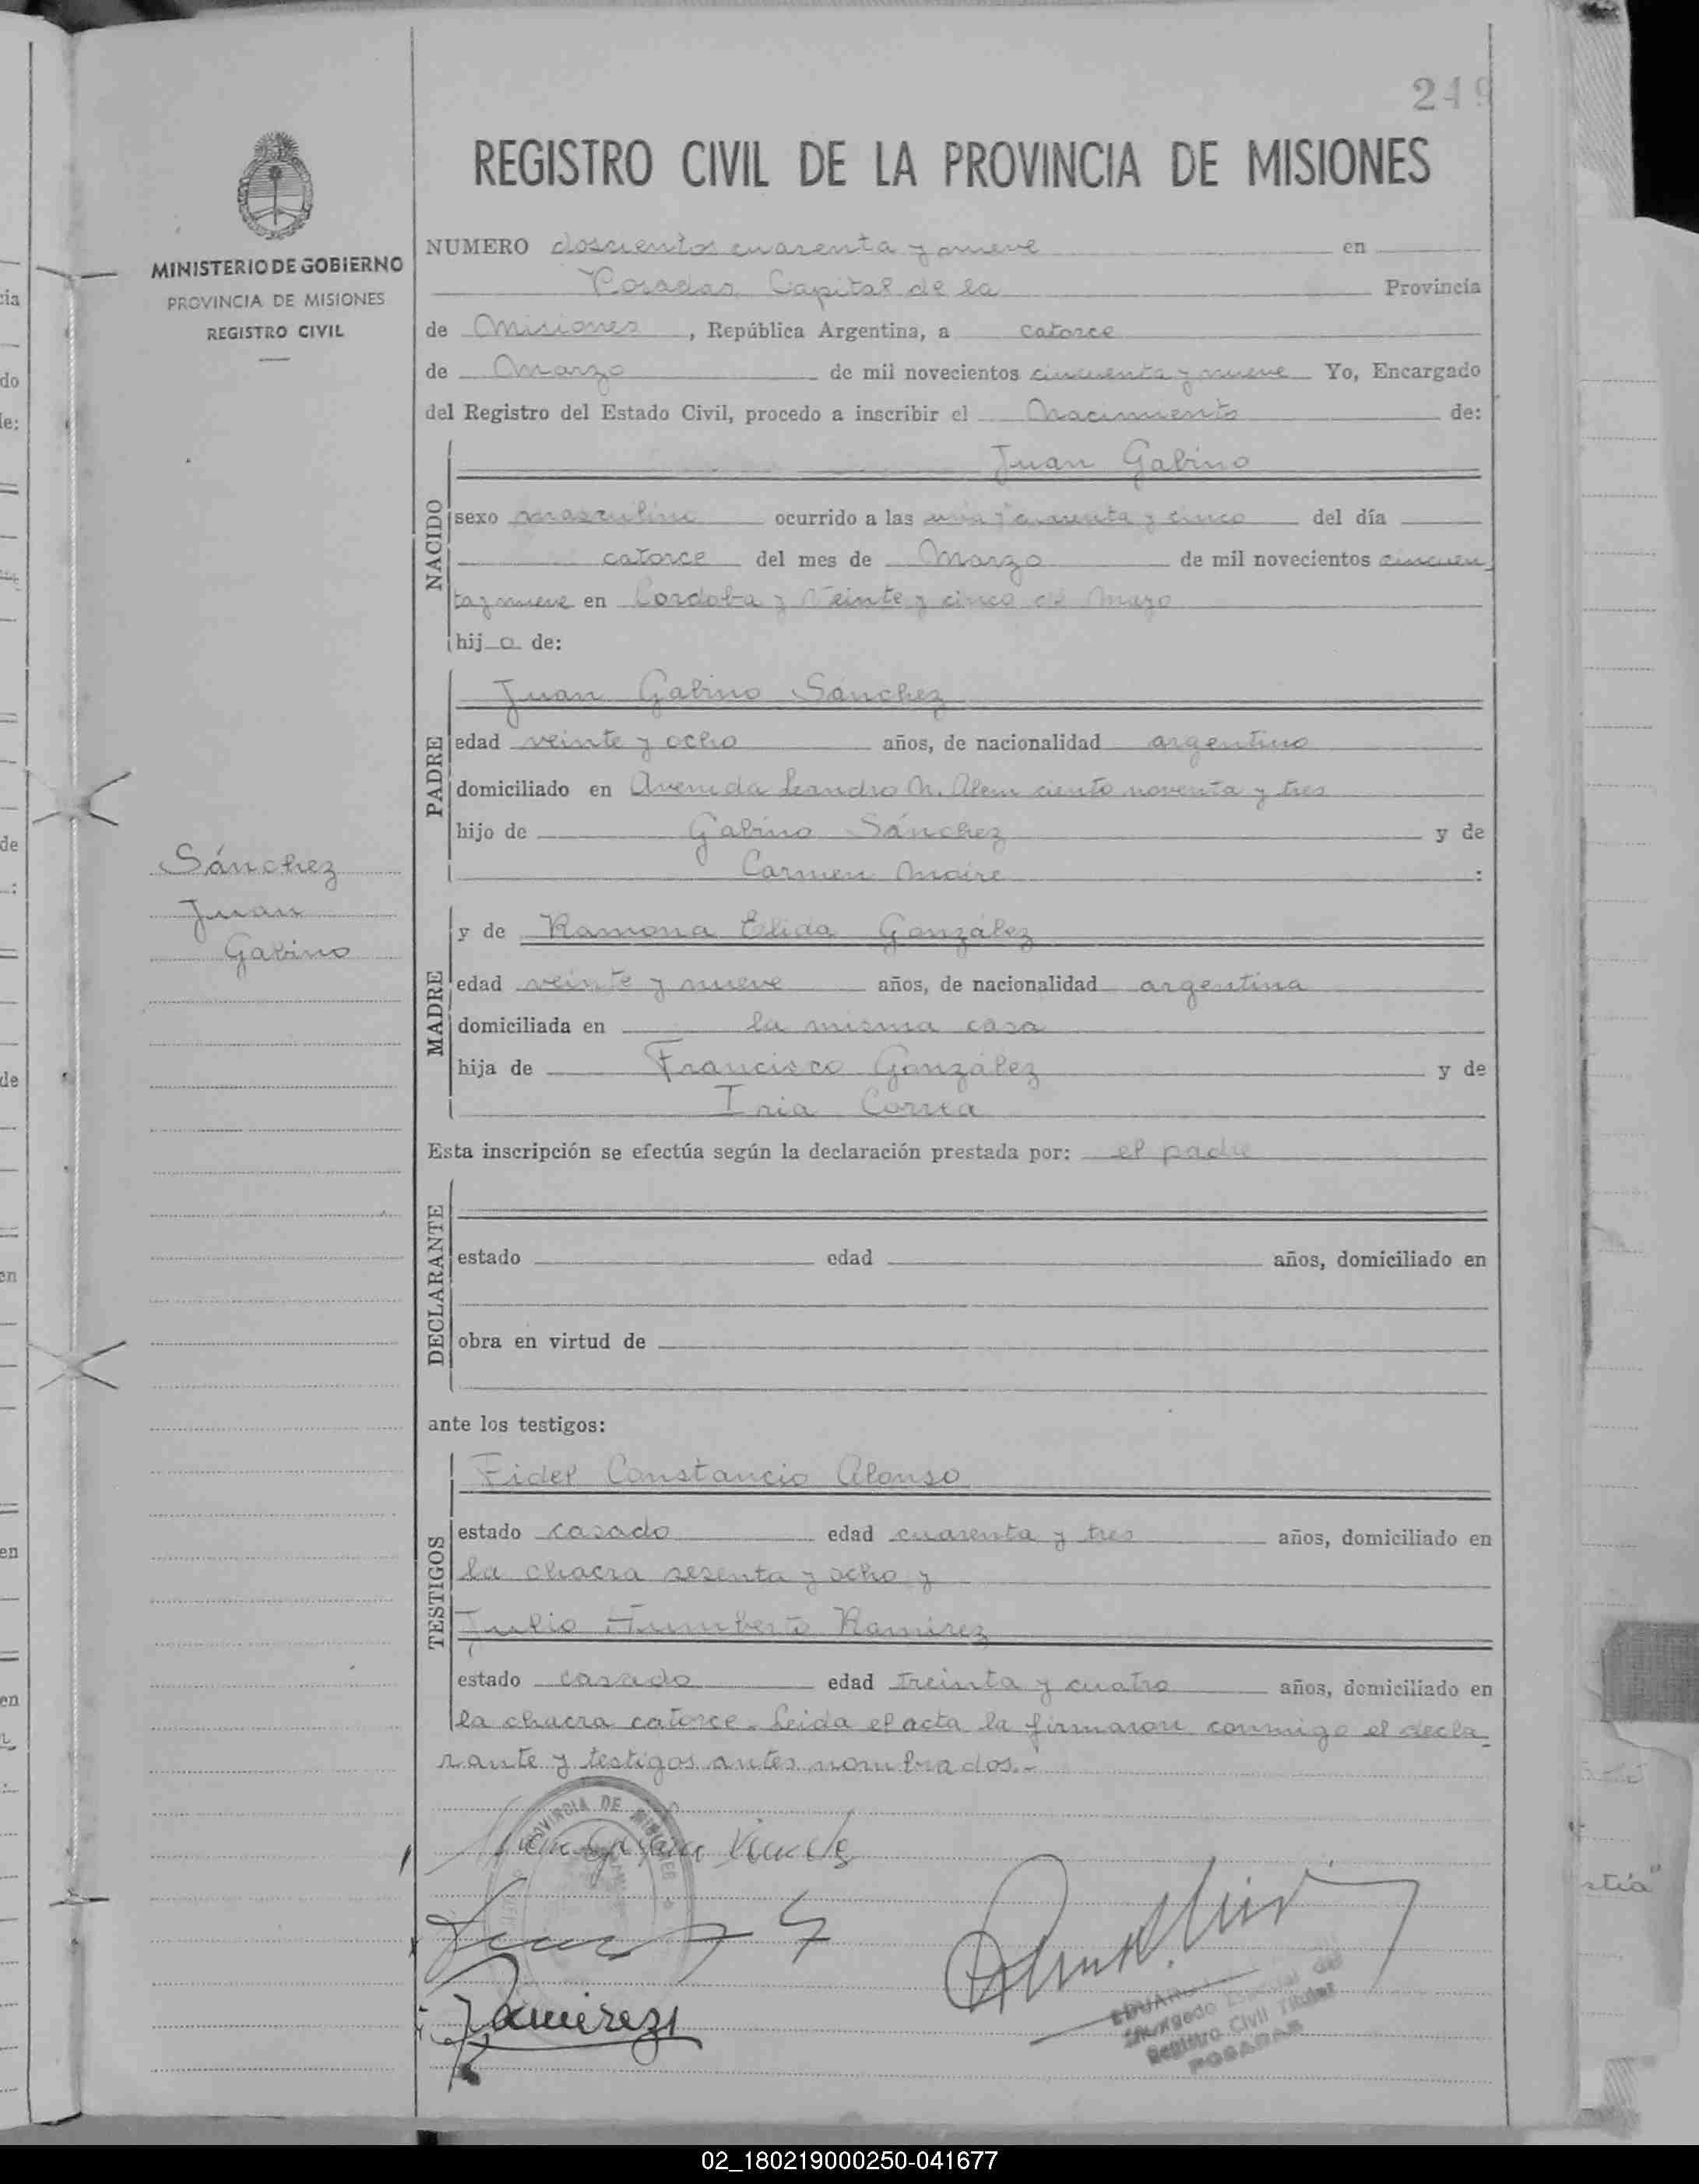 249
REGISTRO CIVIL DE LA PROVINCIA DE MISIONES
MINISTERIO DE GOBIERNO
PROVINCIA DE MISIONES
REGISTRO CIVIL
NUMERO doscientos cuarenta y nueve en
Posadas, Capital de la Provincia
de Misiones, República Argentina, a catorce
de Marzo de mil novecientos cincuenta y nueve Yo, Encargado
del Registro del Estado Civil, procedo a inscribir el Nacimiento de:
NACIDO
Juan Gabino
sexo masculino ocurrido a las una y cuarenta y cinco del día
catorce del mes de Marzo de mil novecientos cincuen
ta y nueve en Cordoba y Veinte y cinco de Mayo
hijo de:
PADRE
Juan Gabino Sánchez
edad veinte y ocho años, de nacionalidad argentino
domiciliado en Avenida Leandro N. Alem ciento noventa y tres
hijo de Gabino Sánchez y de
Carmen Maire :
Sánchez
Juan
Gabino
MADRE
y de Ramona Elida González
edad veinte y nueve años, de nacionalidad argentina
domiciliada en la misma casa
hija de Francisco González y de
Iria Correa
Esta inscripción se efectúa según la declaración prestada por: el padre
DECLARANTE
estado edad años, domiciliado en
obra en virtud de
ante los testigos:
TESTIGOS
Fidel Constancio Alonso
estado casado edad cuarenta y tres años, domiciliado en
la chacra sesenta y ocho y
Julio Humberto Ramírez
estado casado edad treinta y cuatro años, domiciliado en
la chacra catorce. Leida el acta la firmaron conmigo el decla
rante y testigos antes nombrados.-
PROVINCIA DE MISIONES
Ramirez
Registro Civil Titular
POSADAS
02_180219000250-041677